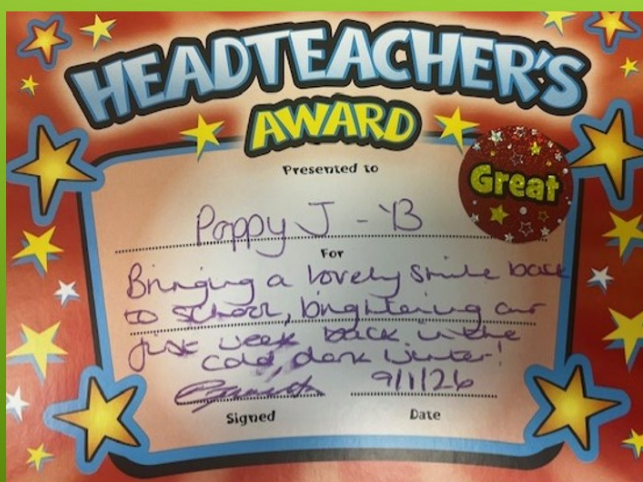 HEADTEACHER'S
AWARD
Great
Presented to
Poppy J - YB
For
Bringing a lovely smile back
to school, brightening our
first week back in the
cold, dark winter!
9/1/26
Signed
Date